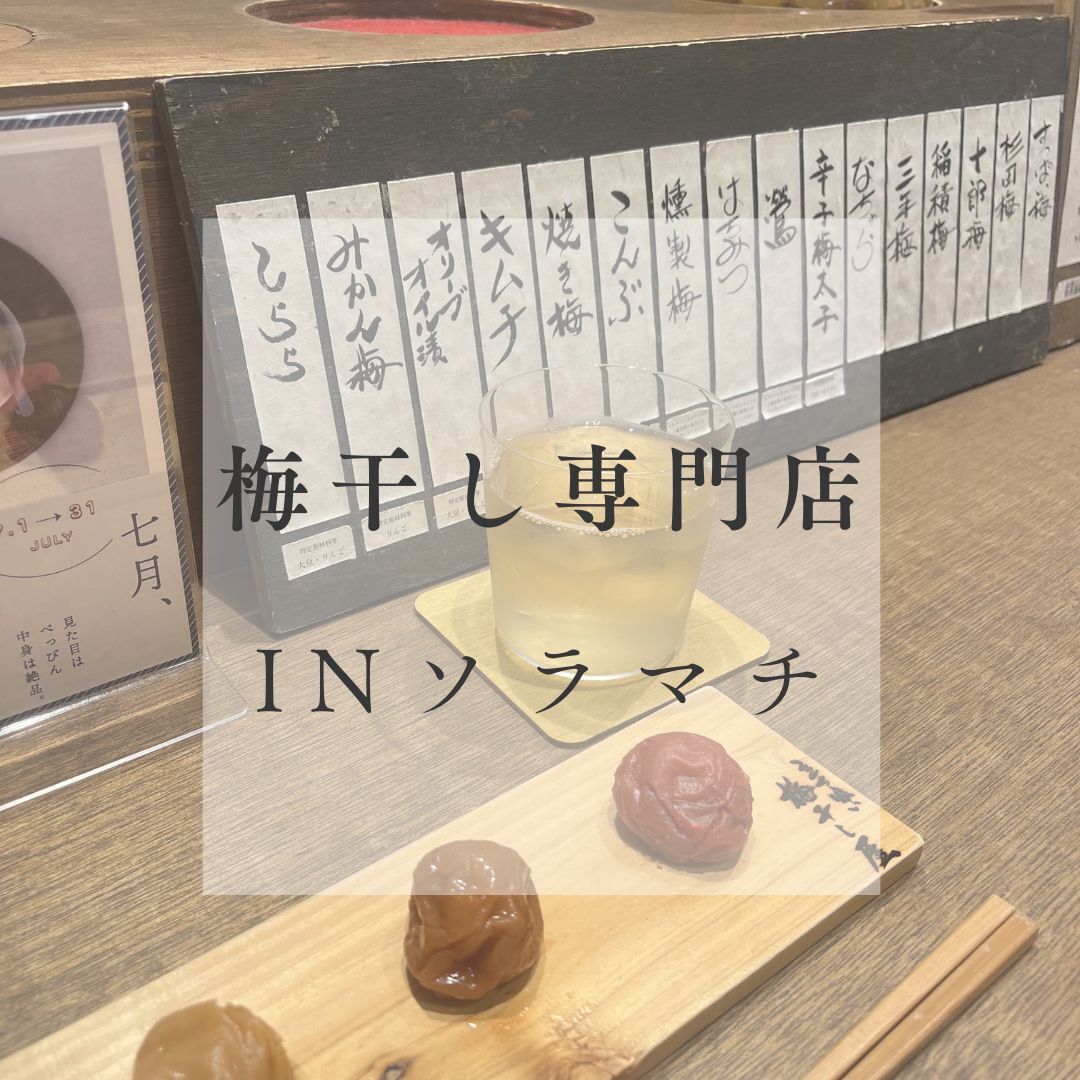 すっぱ梅
杉田梅
十郎梅
稲積梅
三年梅
なでしこ
辛子梅太子
鶯
はちみつ
燻製梅
こんぶ
焼き梅
キムチ
オリーブ
オイル漬
みかん梅
しらら
特定原材料等
大豆・りんご
特定原材料等
りんご
特定原材料等
梅干し専門店
INソラマチ
7.1→31
JULY
七月、
見た目は
べっぴん
中身は絶品。
梅干し屋